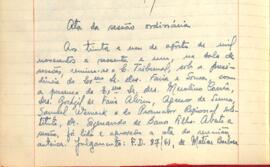 Ata da sessão ordinária
Aos trinta e um de agosto de mil
novecentos e sessenta e um, na sala de
sessões, reuniu-se o E. Tribunal, sob a presi-
dência do Exmo Sr. Des. Faria e Sousa, com
a presença do Exmo Sr. des. Merolino
des. de Faria Alvim, de Lima,
Samuel Werneck e do Procurador Regional subs-
tituto, Dr. Segismundo Filho. Aberta a
sessão, foi lida e aprovada a ata da reunião
anterior. Julgamento: P.D. 87/61, de Matias Barbosa